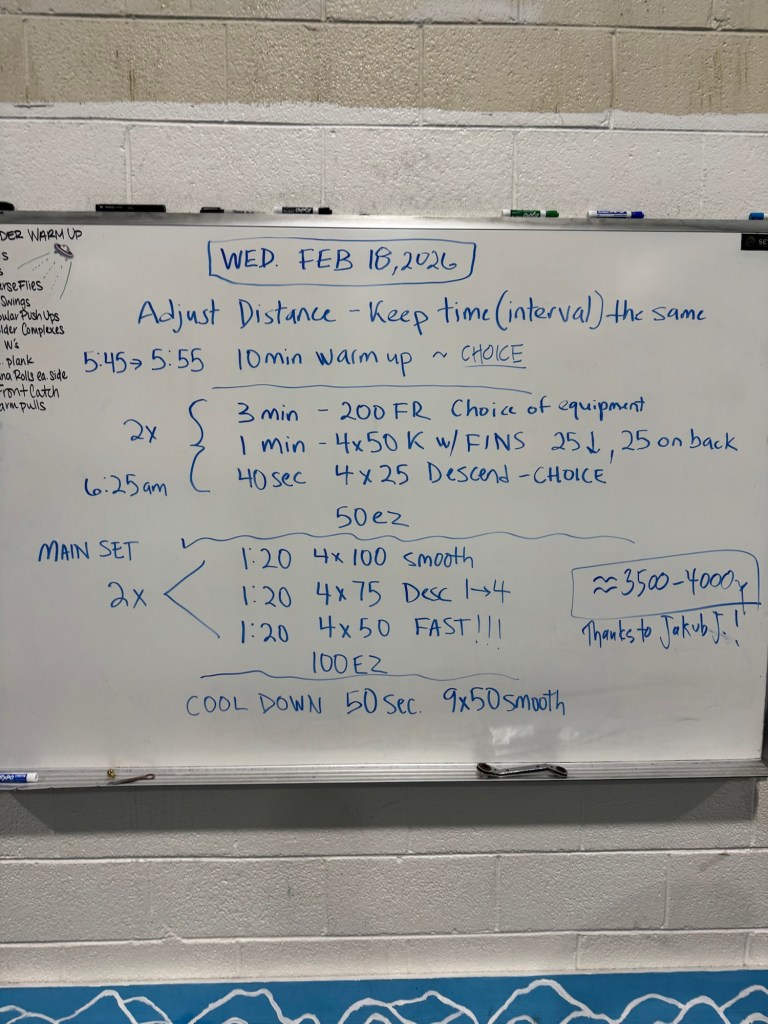 DER WARM UP
S
S
erseFlies
Swings
ular Push Ups
lder Complexes
W's
. plank
na Rolls ea. side
Front Catch
arm pulls
WED. FEB 18, 2026
Adjust Distance - Keep time (interval) the same
5:45→5:55 10 min warm up ~ CHOICE
2x
3 min - 200 FR Choice of equipment
1 min - 4x50 K w/ FINS 25↓, 25 on back
6:25am
40 sec 4 x 25 Descend - CHOICE
50 ez
MAIN SET
2x
1:20 4x 100 smooth
1:20 4x75 Desc 1→4
1:20 4x50 FAST!!!
100 EZ
≈3500-4000y
Thanks to Jakub J.!
COOL DOWN 50 sec. 9x50 smooth
EXPO